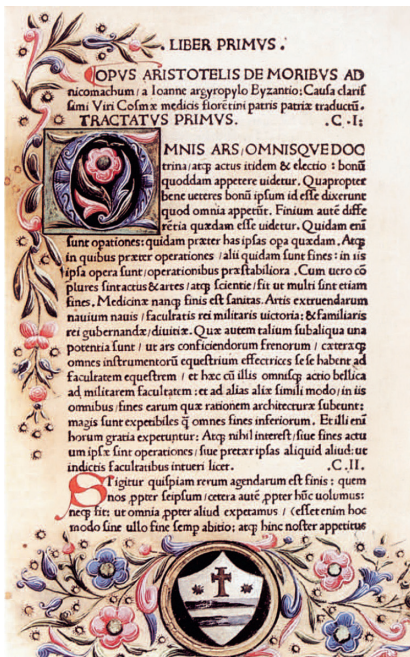 . LIBER PRIMVS .
OPVS ARISTOTELIS DE MORIBVS AD
nicomachum / a Ioanne argyropylo Byzantio: Causa claris
simi Viri Cosmæ medicis florētini patris patriæ traductū.
TRACTATVS PRIMVS. .C.I:
OMNIS ARS/OMNISQVE DOC
trina/atq; actus itidem & electio : bonū
quoddam appetere uidetur. Quapropter
bene ueteres bonū ipsum id esse dixerunt
quod omnia appetūt. Finium autē diffe
rētia quædam esse uidetur. Quidam enī
sunt opationes: quidam præter has ipsas opa quædam. Atq;
in quibus præter operationes / alii quidam sunt fines: in iis
ipsa opera sunt/operationibus præstabiliora . Cum uero cō
plures sint actus & artes/atq; scientie/fit ut multi sint etiam
fines. Medicinæ nanq; finis est sanitas. Artis extruendarum
nauium nauis / facultatis rei militaris uictoria: & familiaris
rei gubernandæ/diuitiæ. Quæ autem talium sub aliqua una
potentia sunt / ut ars conficiendorum frenorum / cæteræq;
omnes instrumentorū equestrium effectrices se se habent ad
facultatem equestrem / et hæc cū illis omnisq; actio bellica
ad militarem facultatem : et ad alias alix simili modo/in iis
omnibus/fines earum quæ rationem architecturæ subeunt:
magis sunt expetibiles q̄ omnes fines inferiorum. Et illi enī
horum gratia expetuntur: Atq; nihil interest/siue fines actu
um ipsæ sint operationes / siue præter ipsas aliquid aliud: ut
in dictis facultatibus intueri licet. .C.II.
SIgitur quispiam rerum agendarum est finis : quem
nos ꝓpter seipsum/cetera autē ꝓpter hūc uolumus:
neq; fit: ut omnia ꝓpter aliud expetamus / (esset enim hoc
modo sine ullo fine semp abitio; atq; hinc noster appetitus